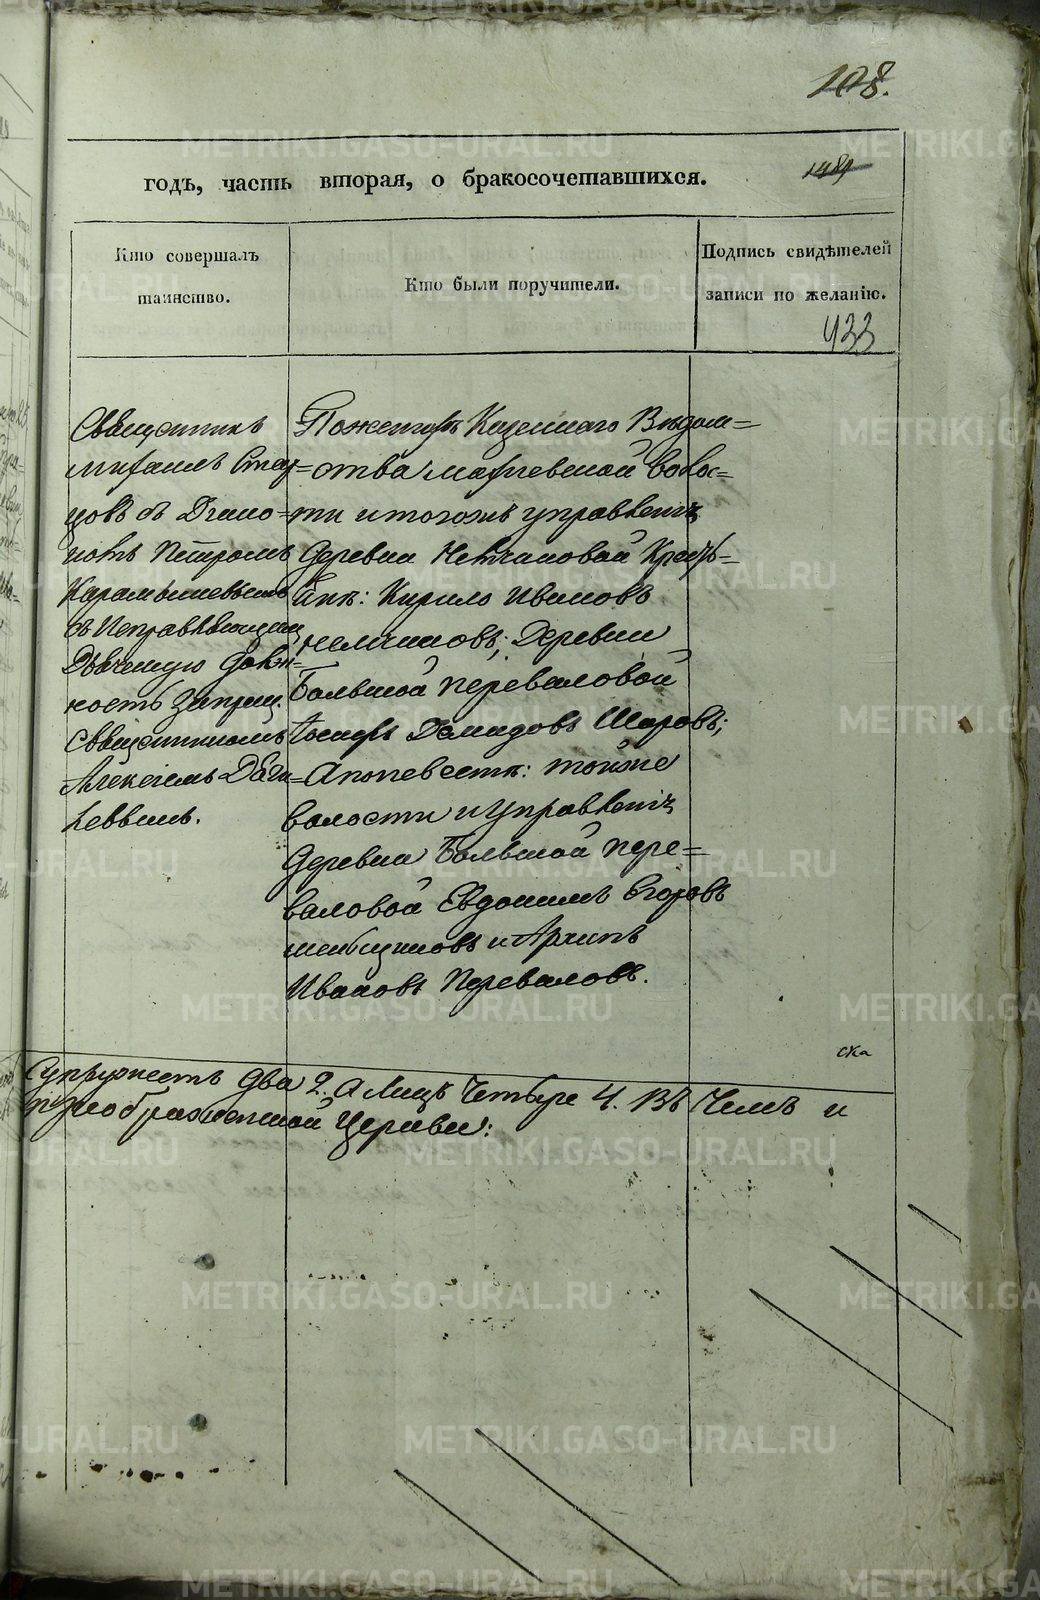 108.
годъ, часть вторая, о бракосочетавшихся.
1489
Кто совершалъ
таинство.
Кто были поручители.
Подпись свидѣтелей
записи по желанію.
433
Священникъ
Михаилъ Стар-
цовъ съ Діако-
номъ Петромъ
Карамышевымъ
съ Исправляющим
Дьяческую Долж-
ность Запрещ.
Священникомъ
Алексіемъ
левымъ.
По женихѣ Казеннаго Вѣдом=
ства волос=
ти и тогожъ управленія
Деревни Крестья=
нинъ: Кирило Ивановъ
Деревни
Большой Переваловой
Іосифъ Демидовъ Шаровъ;
А по невестѣ: тойже
волости и Управленія
Деревни Большой Пере=
валовой Евдокимъ Егоровъ
и Архипъ
Ивановъ Переваловъ.
ска
Супружествъ Два 2. А Лицъ Четыре 4. Въ Чемъ и
Преображенской Церкви:
METRIKI.GASO-URAL.RU